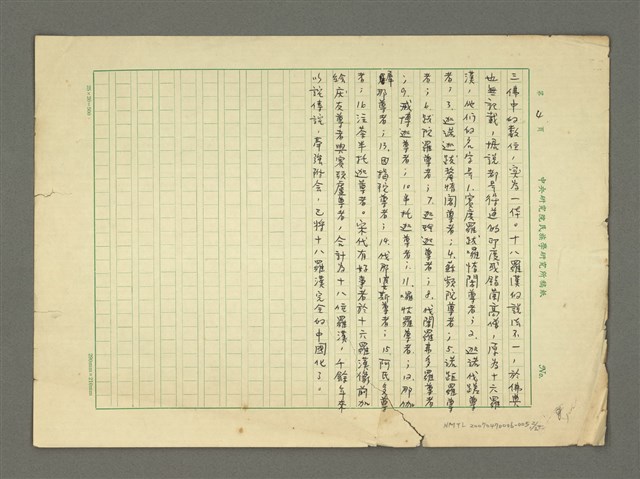 第 4 頁
中央研究院民族學研究所稿紙
No.
三佛中的數位,實為一佛。十八羅漢的說法不一,於佛典
也無記載,據說都是得道的印度或錫蘭高僧,原為十六羅
漢,他們的名字是1.賓度羅跋囉惰闍尊者;2.迦諾伐蹉尊
者;3.迦諾迦跋釐惰闍尊者;4.蘇頻陀尊者;5.諾距羅尊
者;6.跋陀羅尊者;7.迦理迦尊者;8.伐闍羅弗多羅尊者
;9.戒博迦尊者;10.半托迦尊者;11.囉怙羅尊者;12.那伽
犀那尊者;13.因揭陀尊者;14.伐那婆斯尊者;15.阿氏多尊
者;16.注荼半托迦尊者。宋代有好事者於十六羅漢像前加
繪慶友尊者與賓頭盧尊者,合計為十八位羅漢,千餘年來
以訛傳訛,牽強附會,已將十八羅漢完全的中國化了。
25×20=500
280mm×210mm
NMTL